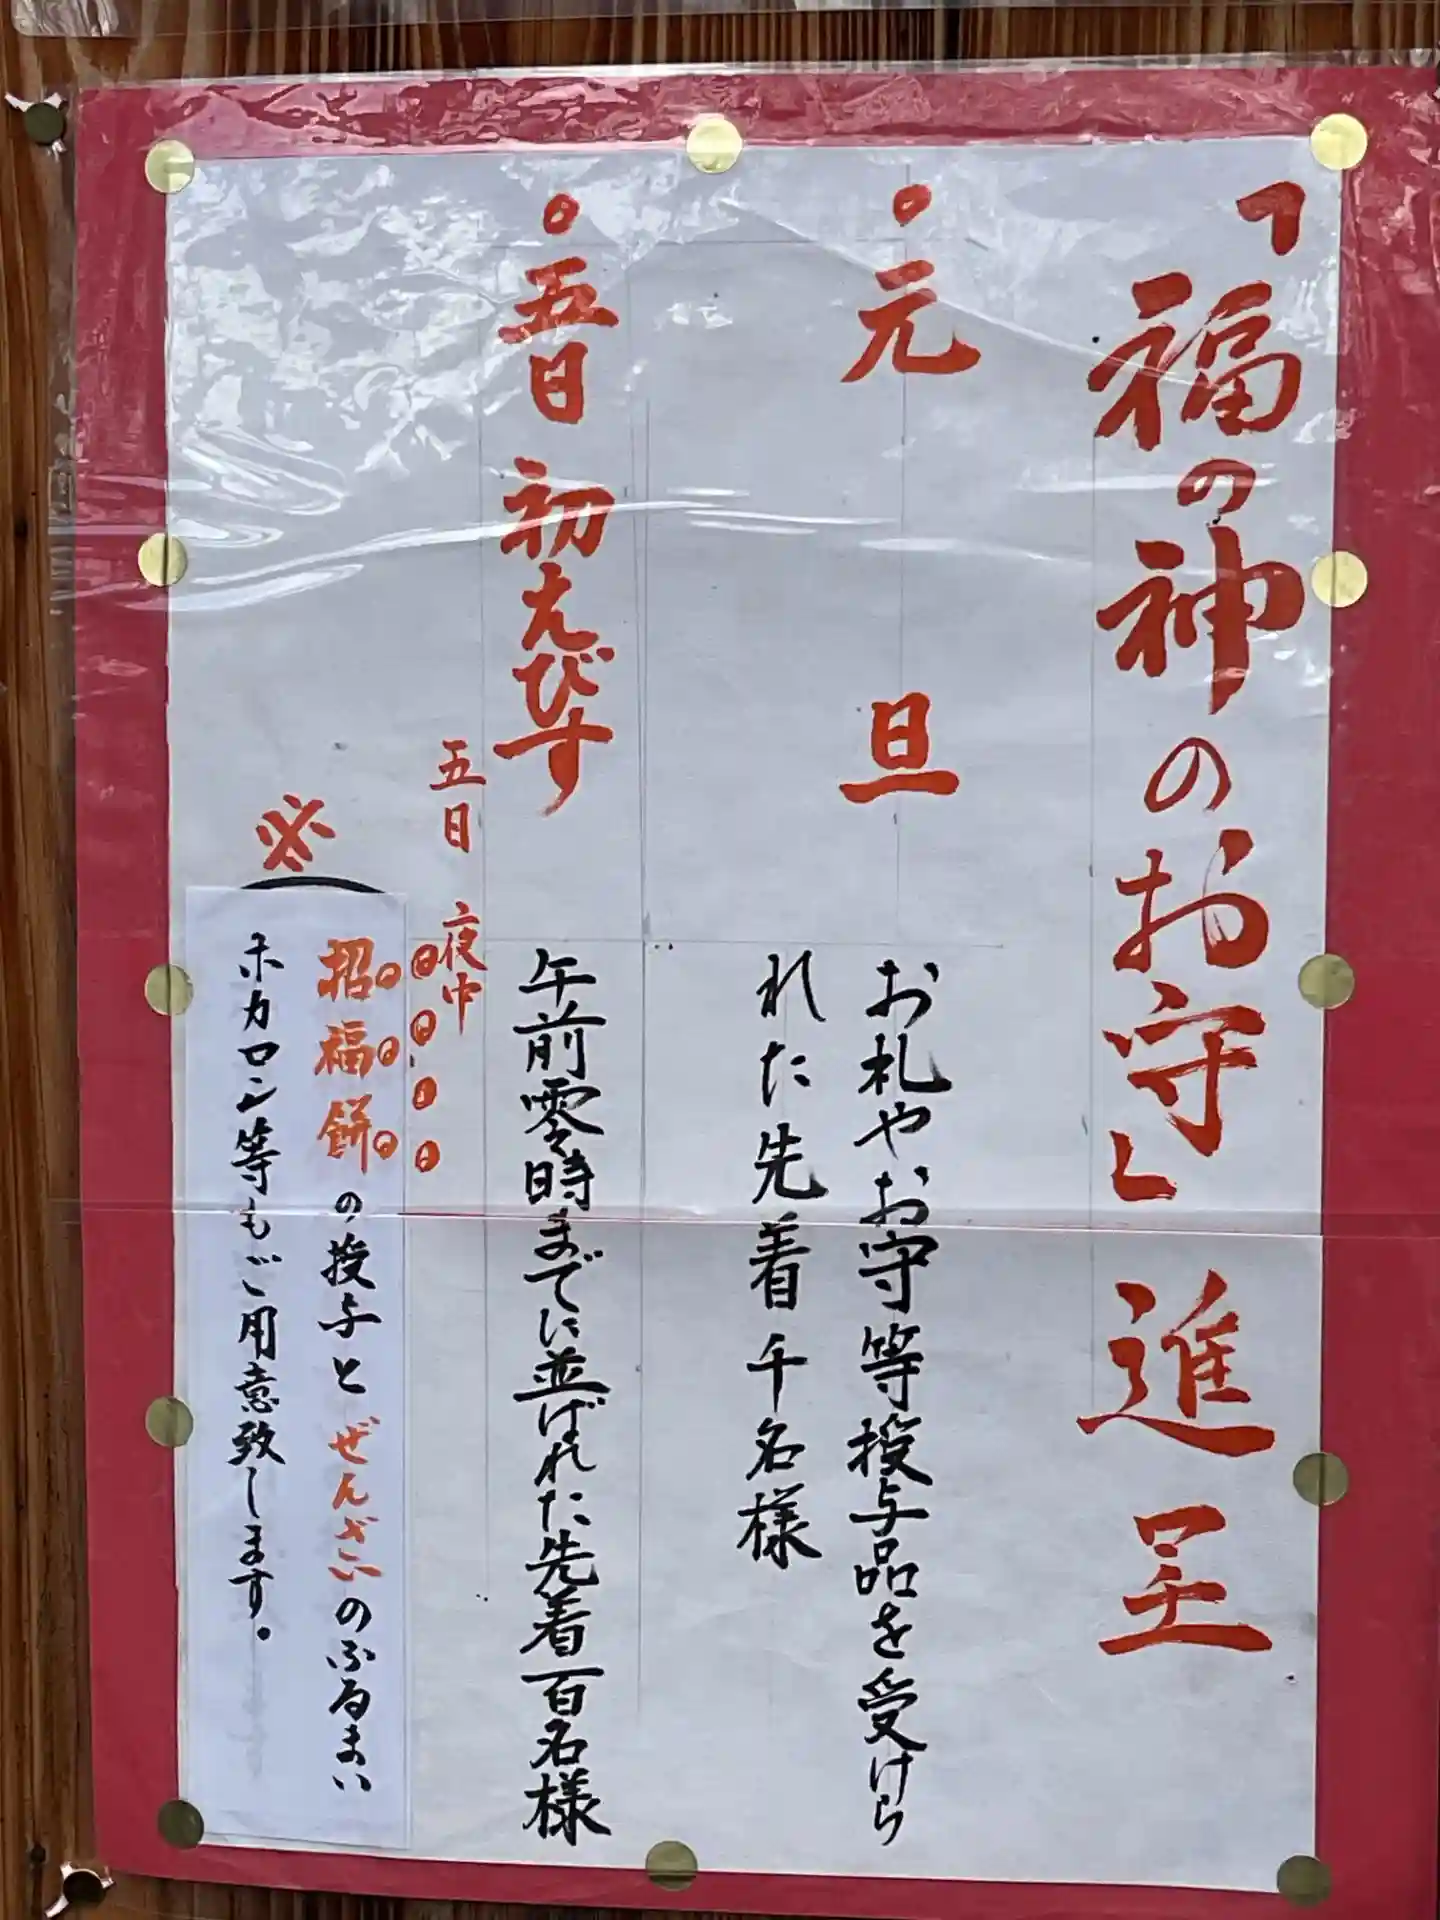 「福の神のお守」進呈
。元旦
お札やお守等授与品を受けら
れた先着千名様
。五日 初えびす
午前零時までに並ばれた先着百名様
五日 夜中
※
招福餅の授与とぜんざいのふるまい
ホカロン等もご用意致します。